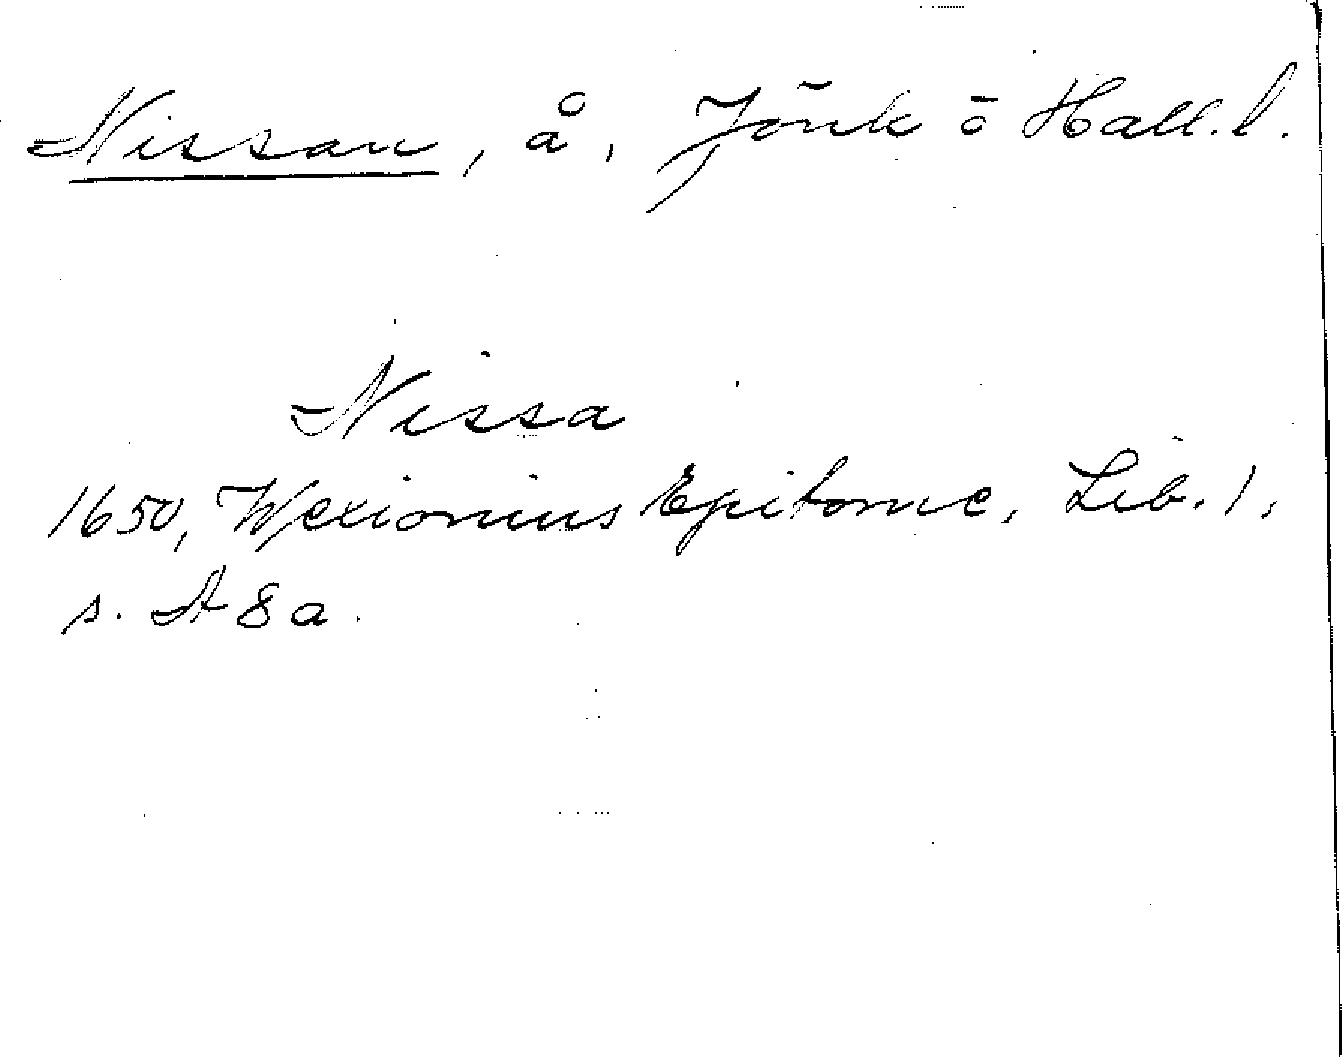 Nissan, å, Jönk o Hall. l.
Nissa
1650, Wexionius Epitome, Lib. 1,
s. A 8 a.